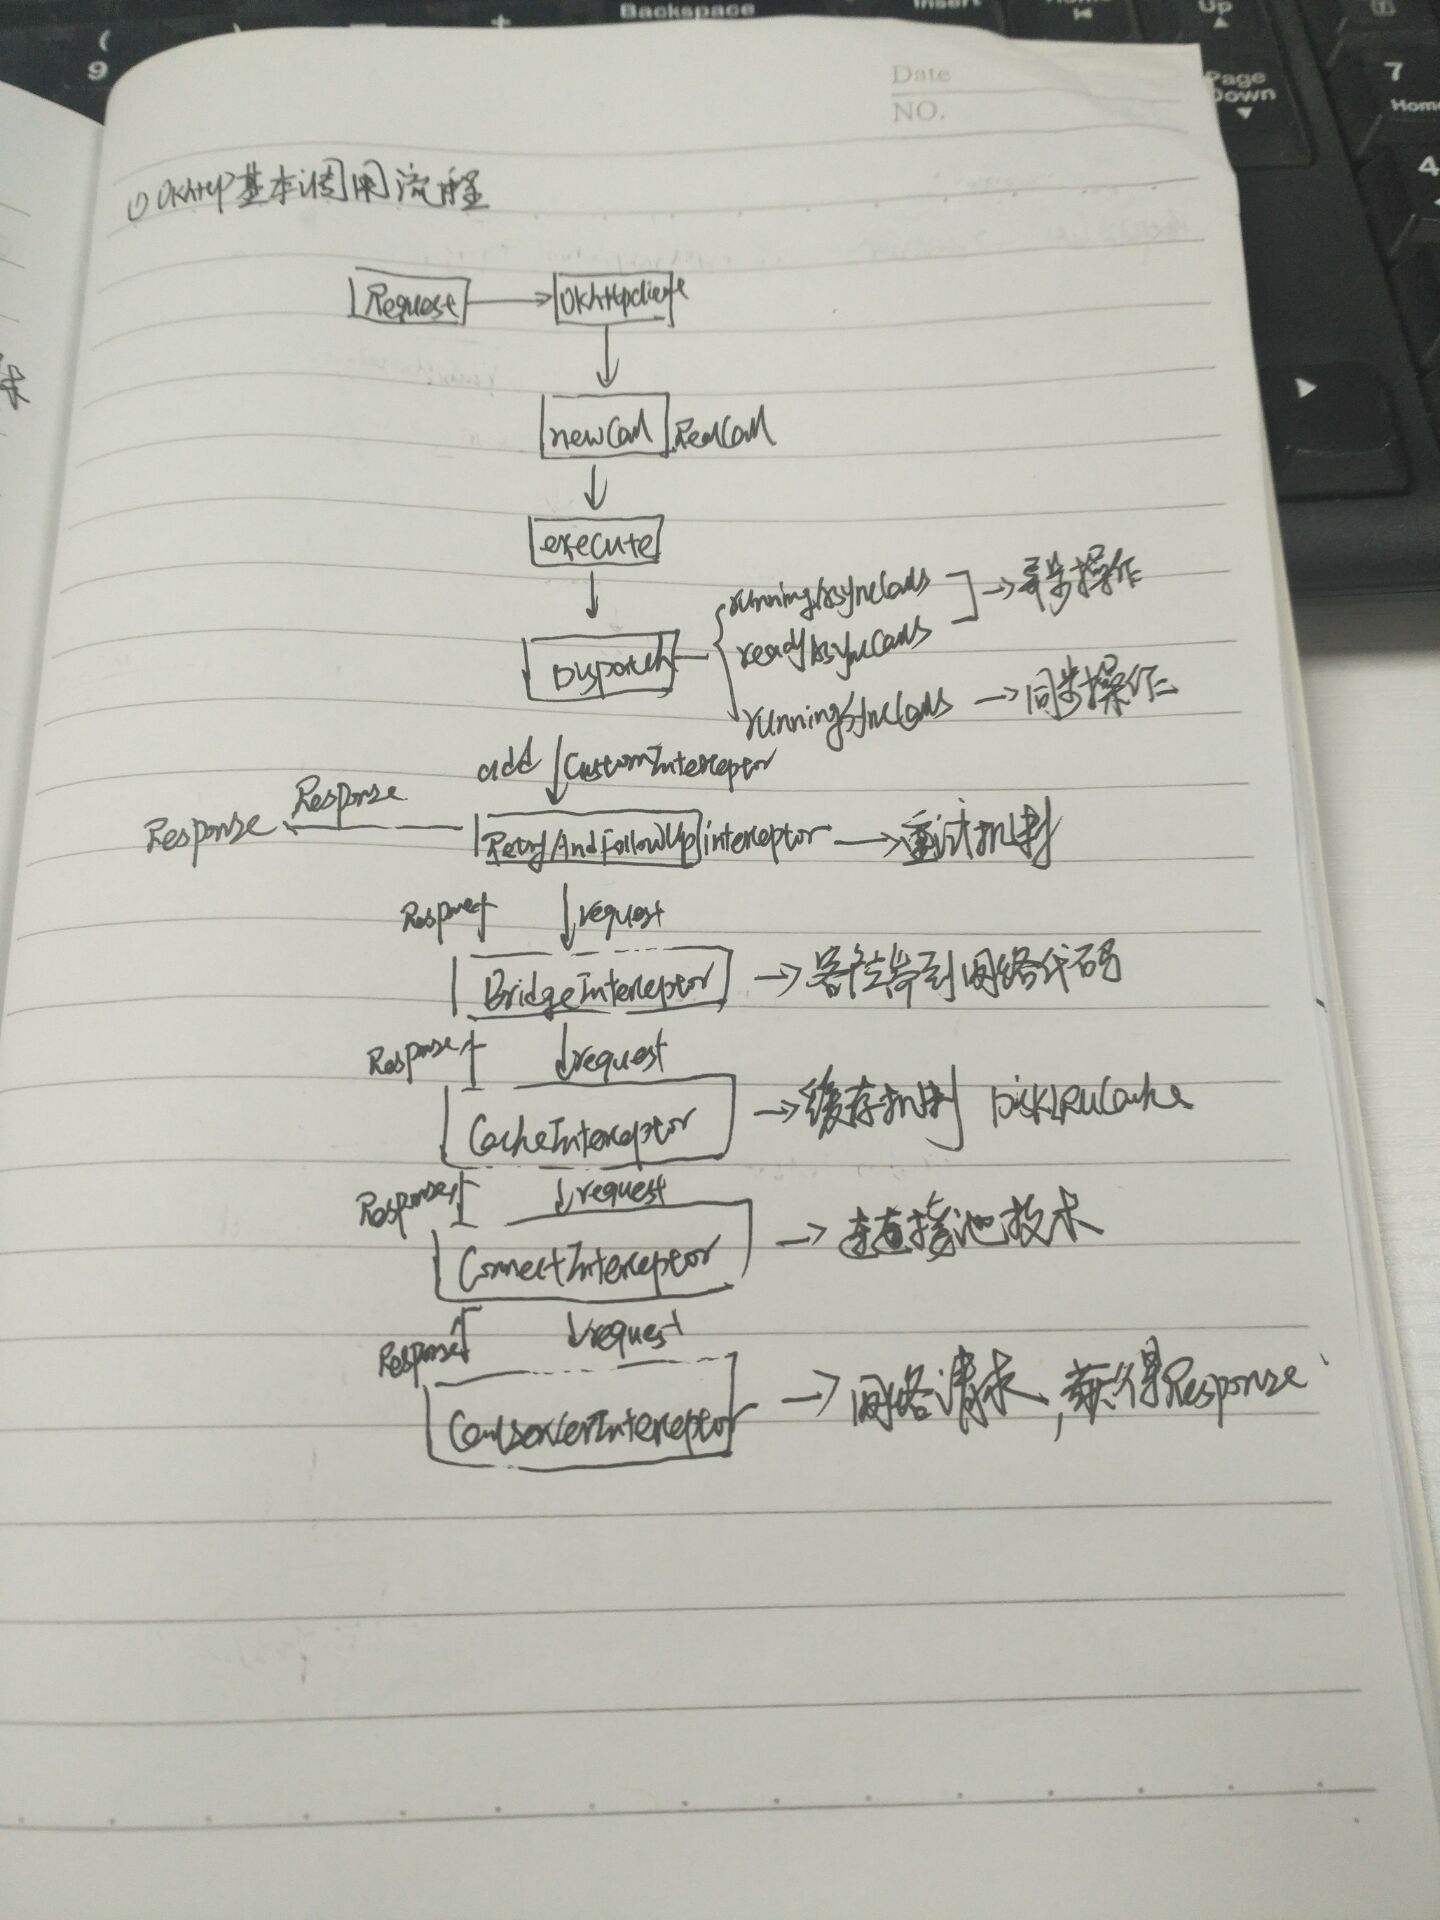 Backspace
Insert
Home
Up
(
9
+
Page
Down
7
Home
4
Date
NO.
(1) OKHttp基本调用流程
Request
OKHttpclient
newCall RealCall
execute
Dispatch
runningAsyncCalls
readyAsyncCalls
异步操作
runningSyncCalls
同步操作
add CustomInterceptor
Response
Response
RetryAndFollowUpinterceptor
重试机制
Response
request
BridgeInterceptor
客户端到网络代码
Response
request
CacheInterceptor
缓存机制 DiskLRUCache
Response
request
ConnectInterceptor
连接池技术
Response
request
CallServerInterceptor
网络请求,获得Response